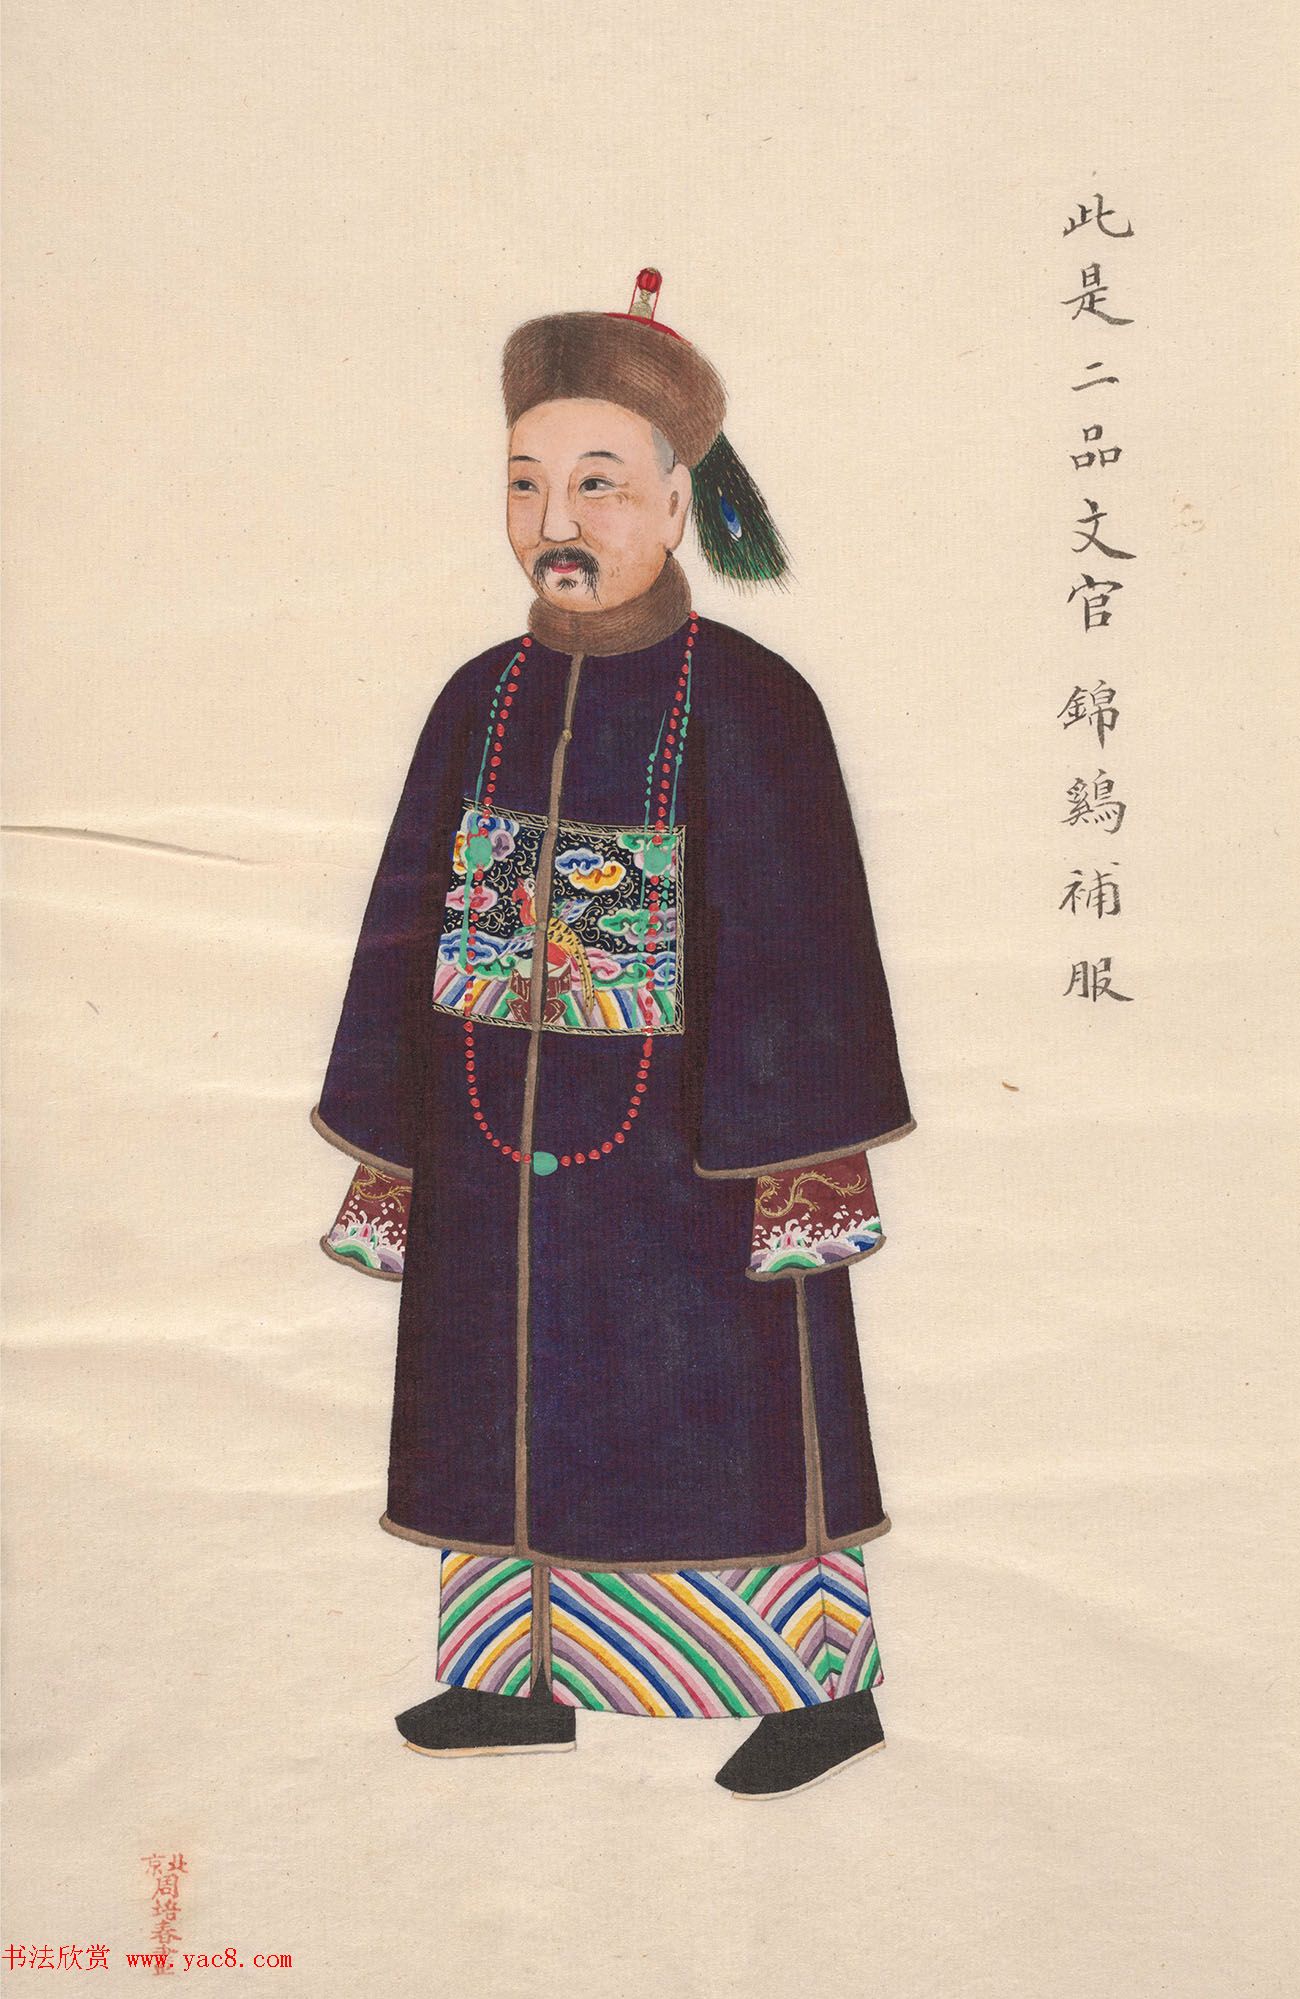 此是二品文官 錦鷄補服
北京
周培春畫
书法欣赏 www.yac8.com